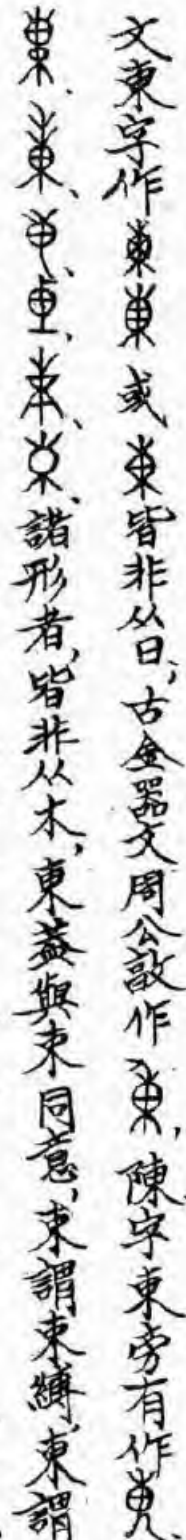 文東字作東東或東皆非从日,古金器文周公𣪘作東,陳字東旁有作
諸形者,皆非从木,東蓋與束同意,束謂束縛,東謂